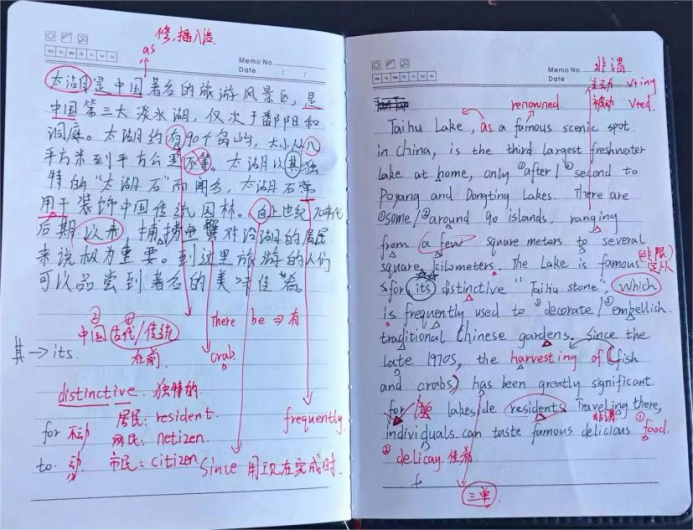 修,插入语
as
Memo No.
Date / /
太湖是中国著名的旅游风景区,是
中国第三大淡水湖,仅次于鄱阳和
洞庭。太湖约有90个岛屿,大小从几
平方米到平方公里不等。太湖以其独
特的“太湖石”而闻名,太湖石常
用于装饰中国传统园林。自上世纪70年代
后期以来,捕捞鱼蟹对沿湖的居民
来说极为重要。到这里旅游的人们
可以品尝到著名的美味佳肴。
② ①
中国古代/传统
在前
there be → 有
其 → its.
crab.
distinctive. 独特的.
frequently
居民: resident.
for 不动
网民: netizen.
to 动
市民: citizen.
Since 用现在完成时.
Memo No.
Date
非谓
主动 Ving
被动 Ved.
renowned.
Taihu Lake, as a famous scenic spot
in China, is the third largest freshwater
lake at home, only ①after/② second to
Poyang and Dongting Lakes. There are
①some/②around 90 islands, ranging
from a few square meters to several
square kilometers. The Lake is famous
for its distinctive "Taihu stone", which
is frequently used to ①decorate/②embellish
traditional Chinese gardens. Since the
late 1970s, the harvesting of (fish
and crabs) has been greatly significant
for lakeside residents. Traveling there,
individuals can taste famous delicious ①food.
定从
非谓
② delicay. 佳肴
三单